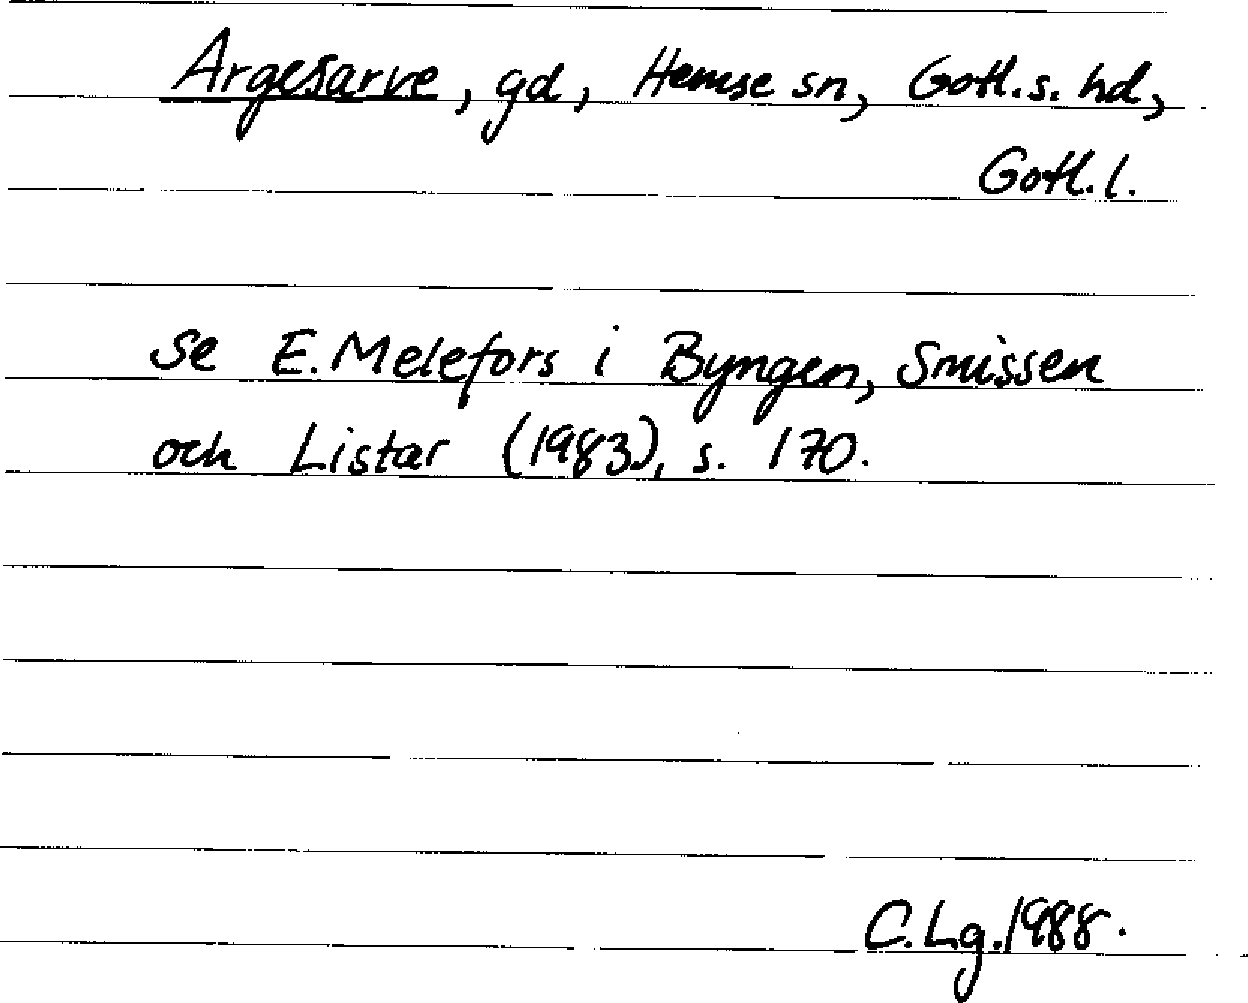 Argesarve, gd, Hemse sn, Gotl. s. hd,
Gotl. l.
Se E. Melefors i Byngen, Smissen
och Listar (1983), s. 170.
C. Lg. 1988.